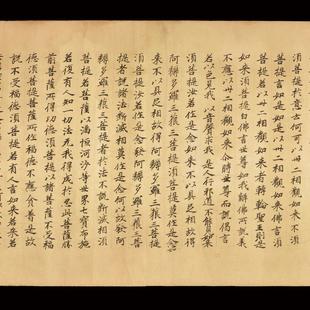 須菩提於意云何可以卅二相觀如來不須
菩提言如是如是以卅二相觀如來佛言須
菩提若以卅二相觀如來者轉輪聖王則是
如來須菩提白佛言世尊如我解佛所說義
不應以卅二相觀如來尒時世尊而說偈言
若以色見我以音聲求我是人行邪道不能見如來
須菩提汝若作是念如來不以具足相故得
阿耨多羅三藐三菩提須菩提莫作是念如
來不以具足相故得阿耨多羅三藐三菩提
須菩提汝若作是念發阿耨多羅三藐三菩
提者說諸法斷滅相莫作是念何以故發阿
耨多羅三藐三菩提心者於法不說斷滅相須
菩提若菩薩以滿恒河沙等世界七寶布施
若復有人知一切法无我得成於忍此菩薩勝
前菩薩所得功德須菩提以諸菩薩不受福
德須菩提菩薩所作福德不應貪著是故
說不受福德須菩提若有人言如來若來若